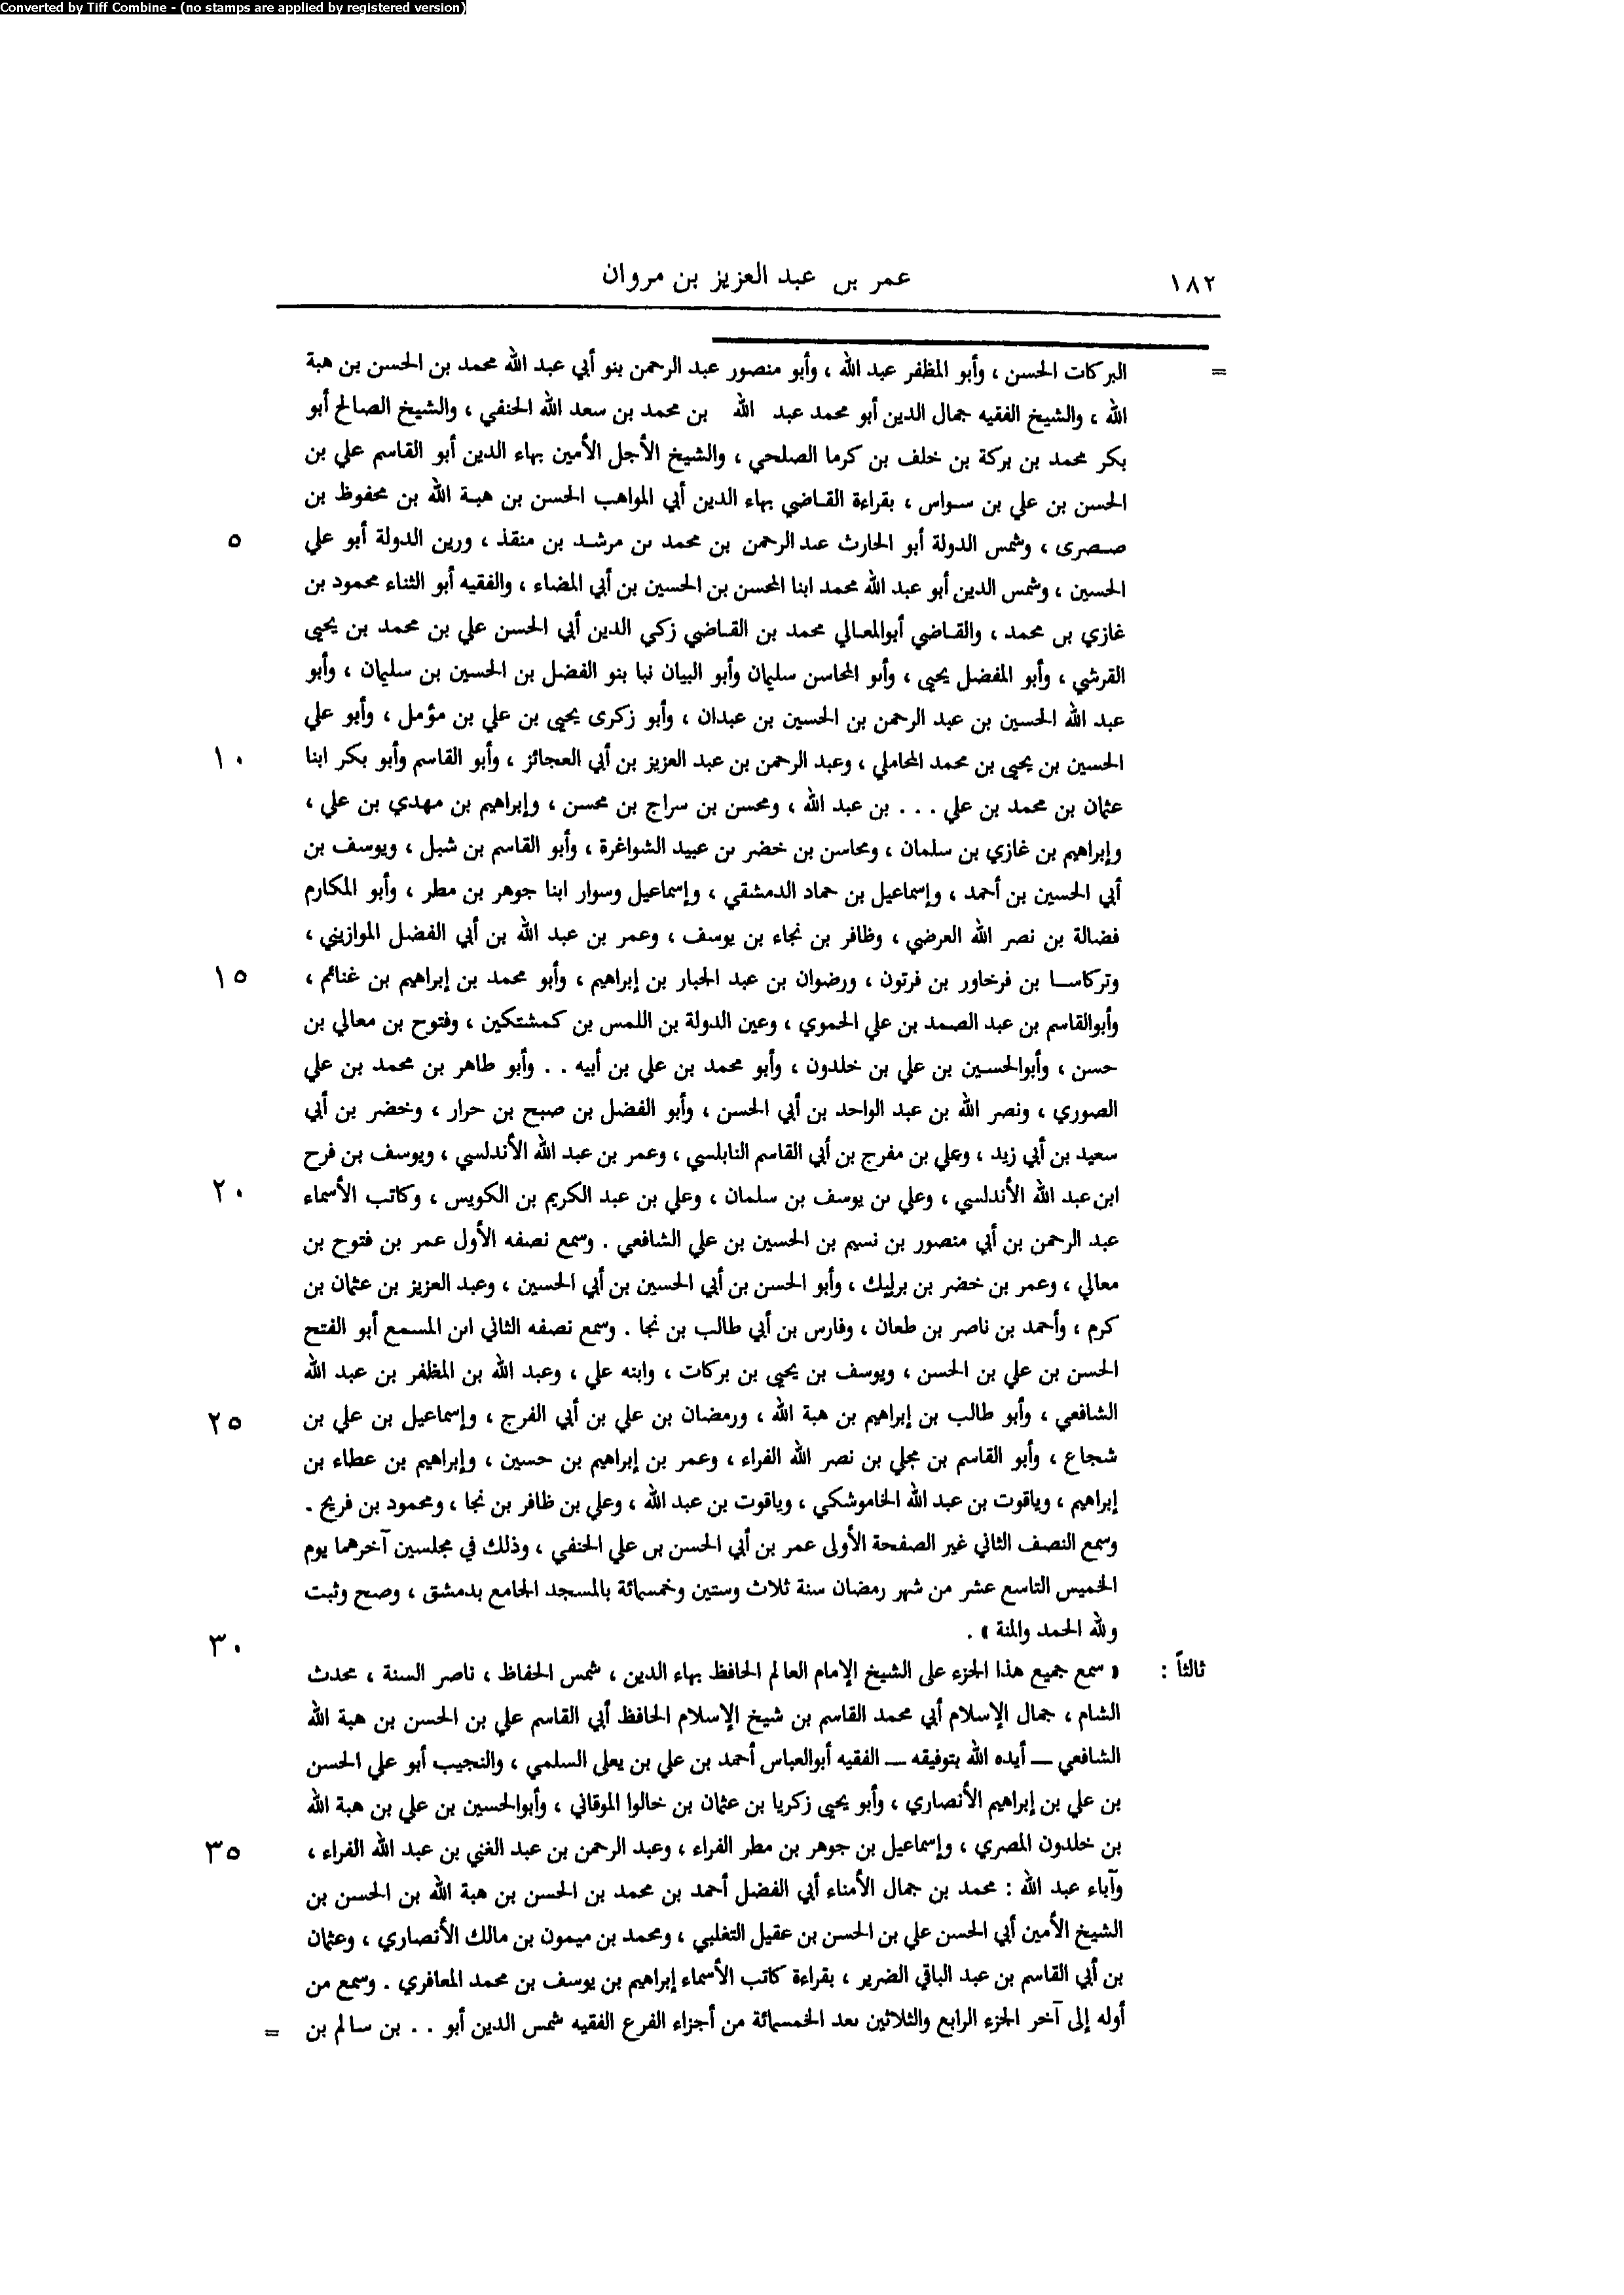 Converted by Tiff Combine - (no stamps are applied by registered version)
١٨٢ عمر بن عبد العزيز بن مروان
= البركات الحسن ، وأبو المظفر عبد الله ، وأبو منصور عبد الرحمن بنو أبي عبد الله محمد بن الحسن بن هبة
الله ، والشيخ الفقيه جمال الدين أبو محمد عبد الله بن محمد بن سعد الله الحنفي ، والشيخ الصالح أبو
بكر محمد بن بركة بن خلف بن كرما الصلحي ، والشيخ الأجل الأمين بهاء الدين أبو القاسم علي بن
الحسن بن علي بن سواس ، بقراءة القاضي بهاء الدين أبي المواهب الحسن بن هبة الله بن محفوظ بن
صصرى ، وشمس الدولة أبو الحارث عبد الرحمن بن محمد بن مرشد بن منقذ ، وزين الدولة أبو علي ٥
الحسين ، وشمس الدين أبو عبد الله محمد ابنا المحسن بن الحسين بن أبي المضاء ، والفقيه أبو الثناء محمود بن
غازي بن محمد ، والقاضي أبوالمعالي محمد بن القاضي زكي الدين أبي الحسن علي بن محمد بن يحيى
القرشي ، وأبو المفضل يحيى ، وأبو المحاسن سليمان وأبو البيان نبا بنو الفضل بن الحسين بن سليمان ، وأبو
عبد الله الحسين بن عبد الرحمن بن الحسين بن عبدان ، وأبو زكرى يحيى بن علي بن مؤمل ، وأبو علي
الحسين بن يحيى بن محمد المحاملي ، وعبد الرحمن بن عبد العزيز بن أبي العجائز ، وأبو القاسم وأبو بكر ابنا ١٠
عثمان بن محمد بن علي . . . بن عبد الله ، ومحسن بن سراج بن محسن ، وإبراهيم بن مهدي بن علي ،
وإبراهيم بن غازي بن سلمان ، ومحاسن بن خضر بن عبيد الشواغرة ، وأبو القاسم بن شبل ، ويوسف بن
أبي الحسين بن أحمد ، وإسماعيل بن حماد الدمشقي ، وإسماعيل وسوار ابنا جوهر بن مطر ، وأبو المكارم
فضالة بن نصر الله العرضي ، وظافر بن نجاء بن يوسف ، وعمر بن عبد الله بن أبي الفضل الموازيني ،
وتركاسا بن فرخاور بن فرتون ، ورضوان بن عبد الجبار بن إبراهيم ، وأبو محمد بن إبراهيم بن غنائم ، ١٥
وأبوالقاسم بن عبد الصمد بن علي الحموي ، وعين الدولة بن اللمس بن كمشتكين ، وفتوح بن معالي بن
حسن ، وأبوالحسين بن علي بن خلدون ، وأبو محمد بن علي بن أبيه . . وأبو طاهر بن محمد بن علي
الصوري ، ونصر الله بن عبد الواحد بن أبي الحسن ، وأبو الفضل بن صبح بن حرار ، وخضر بن أبي
سعيد بن أبي زيد ، وعلي بن مفرج بن أبي القاسم النابلسي ، وعمر بن عبد الله الأندلسي ، ويوسف بن فرح
ابن عبد الله الأندلسي ، وعلي بن يوسف بن سلمان ، وعلي بن عبد الكريم بن الكويس ، وكاتب الأسماء ٢٠
عبد الرحمن بن أبي منصور بن نسيم بن الحسين بن علي الشافعي . وسمع نصفه الأول عمر بن فتوح بن
معالي ، وعمر بن خضر بن برليك ، وأبو الحسن بن أبي الحسين بن أبي الحسين ، وعبد العزيز بن عثمان بن
كرم ، وأحمد بن ناصر بن طعان ، وفارس بن أبي طالب بن نجا . وسمع نصفه الثاني ابن المسمع أبو الفتح
الحسن بن علي بن الحسن ، ويوسف بن يحيى بن بركات ، وابنه علي ، وعبد الله بن المظفر بن عبد الله
الشافعي ، وأبو طالب بن إبراهيم بن هبة الله ، ورمضان بن علي بن أبي الفرج ، وإسماعيل بن علي بن ٢٥
شجاع ، وأبو القاسم بن مجلي بن نصر الله الفراء ، وعمر بن إبراهيم بن حسين ، وإبراهيم بن عطاء بن
إبراهيم ، وياقوت بن عبد الله الخاموشكي ، وياقوت بن عبد الله ، وعلي بن ظافر بن نجا ، ومحمود بن فريح .
وسمع النصف الثاني غير الصفحة الأولى عمر بن أبي الحسن بن علي الحنفي ، وذلك في مجلسين آخرهما يوم
الخميس التاسع عشر من شهر رمضان سنة ثلاث وستين وخمسمائة بالمسجد الجامع بدمشق ، وصح وثبت
ولله الحمد والمنة » . ٣٠
ثالثاً : « سمع جميع هذا الجزء على الشيخ الإمام العالم الحافظ بهاء الدين ، شمس الحفاظ ، ناصر السنة ، محدث
الشام ، جمال الإسلام أبي محمد القاسم بن شيخ الإسلام الحافظ أبي القاسم علي بن الحسن بن هبة الله
الشافعي — أيده الله بتوفيقه — الفقيه أبوالعباس أحمد بن علي بن يعلى السلمي ، والنجيب أبو علي الحسن
بن علي بن إبراهيم الأنصاري ، وأبو يحيى زكريا بن عثمان بن خالوا الموقاني ، وأبوالحسين بن علي بن هبة الله
بن خلدون المصري ، وإسماعيل بن جوهر بن مطر الفراء ، وعبد الرحمن بن عبد الغني بن عبد الله الفراء ، ٣٥
وآباء عبد الله : محمد بن جمال الأمناء أبي الفضل أحمد بن محمد بن الحسن بن هبة الله بن الحسن بن
الشيخ الأمين أبي الحسن علي بن الحسن بن عقيل التغلبي ، ومحمد بن ميمون بن مالك الأنصاري ، وعثمان
بن أبي القاسم بن عبد الباقي الضرير ، بقراءة كاتب الأسماء إبراهيم بن يوسف بن محمد المعافري . وسمع من
أوله إلى آخر الجزء الرابع والثلاثين بعد الخمسمائة من أجزاء الفرع الفقيه شمس الدين أبو . . بن سالم بن =